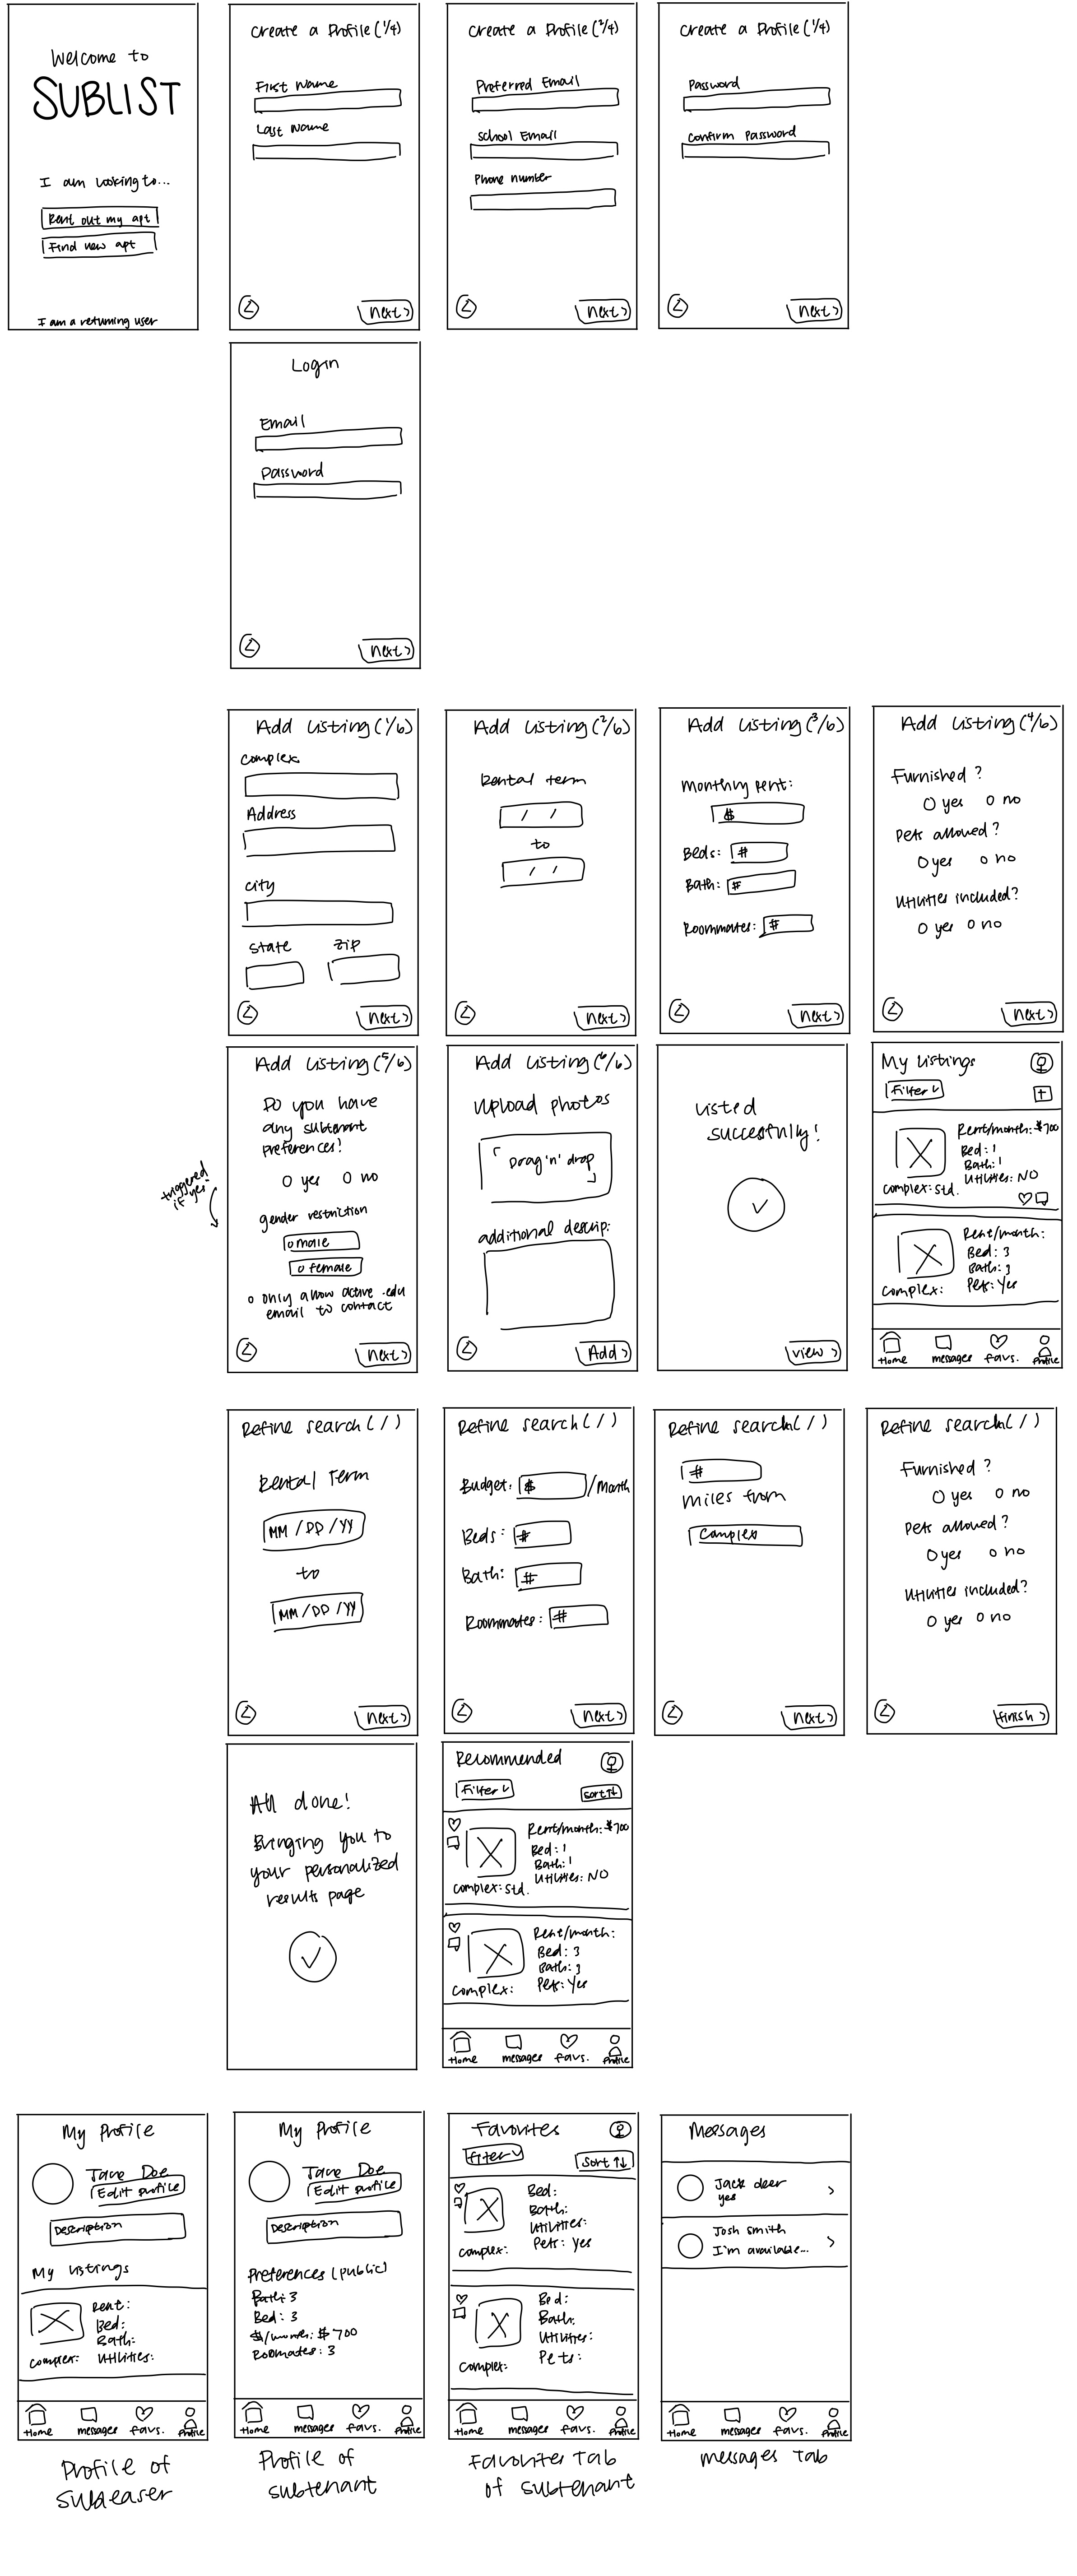 Welcome to
SUBLIST
I am looking to...
Rent out my apt
Find new apt
I am a returning user
Create a Profile (1/4)
First Name
Last Name
next >
Create a Profile (2/4)
Preferred Email
School Email
Phone number
next >
Create a Profile (1/4)
Password
Confirm Password
next >
Login
Email
Password
next >
Add Listing (1/6)
Complex
Address
City
State Zip
next >
Add Listing (2/6)
Rental term
/ /
to
/ /
next >
Add Listing (3/6)
Monthly rent:
$
Beds: #
Bath: #
Roommates: #
next >
Add Listing (4/6)
Furnished?
yes no
Pets allowed?
yes no
Utilities included?
yes no
next >
triggered
if yes:
Add Listing (5/6)
Do you have
any subtenant
preferences?
yes no
gender restriction
male
female
only allow active .edu
email to contact
next >
Add Listing (6/6)
Upload photos
Drag 'n' drop
additional descrip:
Add >
Listed
succesfully!
view >
My Listings
Filter
Rent/month: $700
Bed: 1
Bath: 1
Utilities: NO
Complex: Std.
Rent/month:
Bed: 3
Bath: 3
Pets: Yes
Complex:
Home messages favs. Profile
Refine search ( / )
Rental Term
MM / DD / YY
to
MM / DD / YY
next >
Refine search ( / )
Budget: $ /Month
Beds: #
Bath: #
Roommates: #
next >
Refine search ( / )
#
miles from
Complex
next >
Refine search ( / )
Furnished?
yes no
Pets allowed?
yes no
Utilities included?
yes no
finish >
All done!
Bringing you to
your personalized
results page
Recommended
Filter
Sort ↑↓
Rent/month: $700
Bed: 1
Bath: 1
Utilities: NO
Complex: Std.
Rent/month:
Bed: 3
Bath: 3
Pets: Yes
Complex:
Home messages favs. Profile
My Profile
Jane Doe
Edit profile
Description
My Listings
Rent:
Bed:
Bath:
Complex: Utilities:
Home messages favs. Profile
Profile of
subleaser
My Profile
Jane Doe
Edit profile
Description
Preferences (public)
Bath: 3
Bed: 3
$/month: $700
Roomates: 3
Home messages favs. Profile
Profile of
subtenant
Favorites
Filter
Sort ↑↓
Bed:
Bath:
Utilities:
Pets: yes
Complex:
Bed:
Bath:
Utilities:
Pets:
Complex:
Home messages favs. Profile
Favorites Tab
of subtenant
Messages
Jack deer
yes
Josh Smith
I'm available...
Home messages favs. Profile
messages Tab